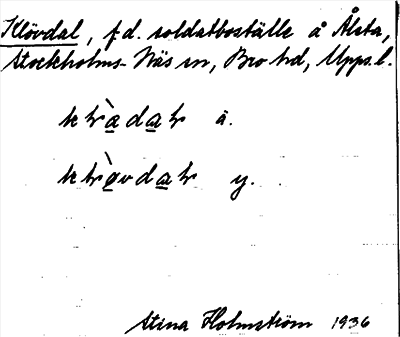 Klövdal, f.d. soldatboställe å Ålsta,
Stockholms-Näs sn, Bro hd, Upps.l.
ä.
y.
Stina Holmström 1936